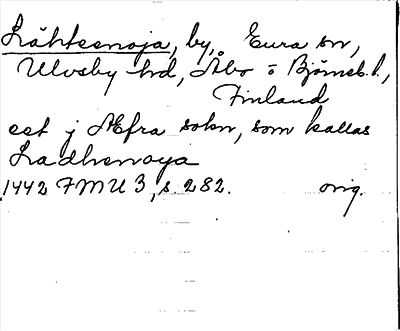 Lähteenoja, by, Eura sn,
Ulvsby hd, Åbo o Björneb. l.,
Finland
eet j Æfra sokn, som kallas
Ladhenoya
1442 FMU 3, s. 282. orig.